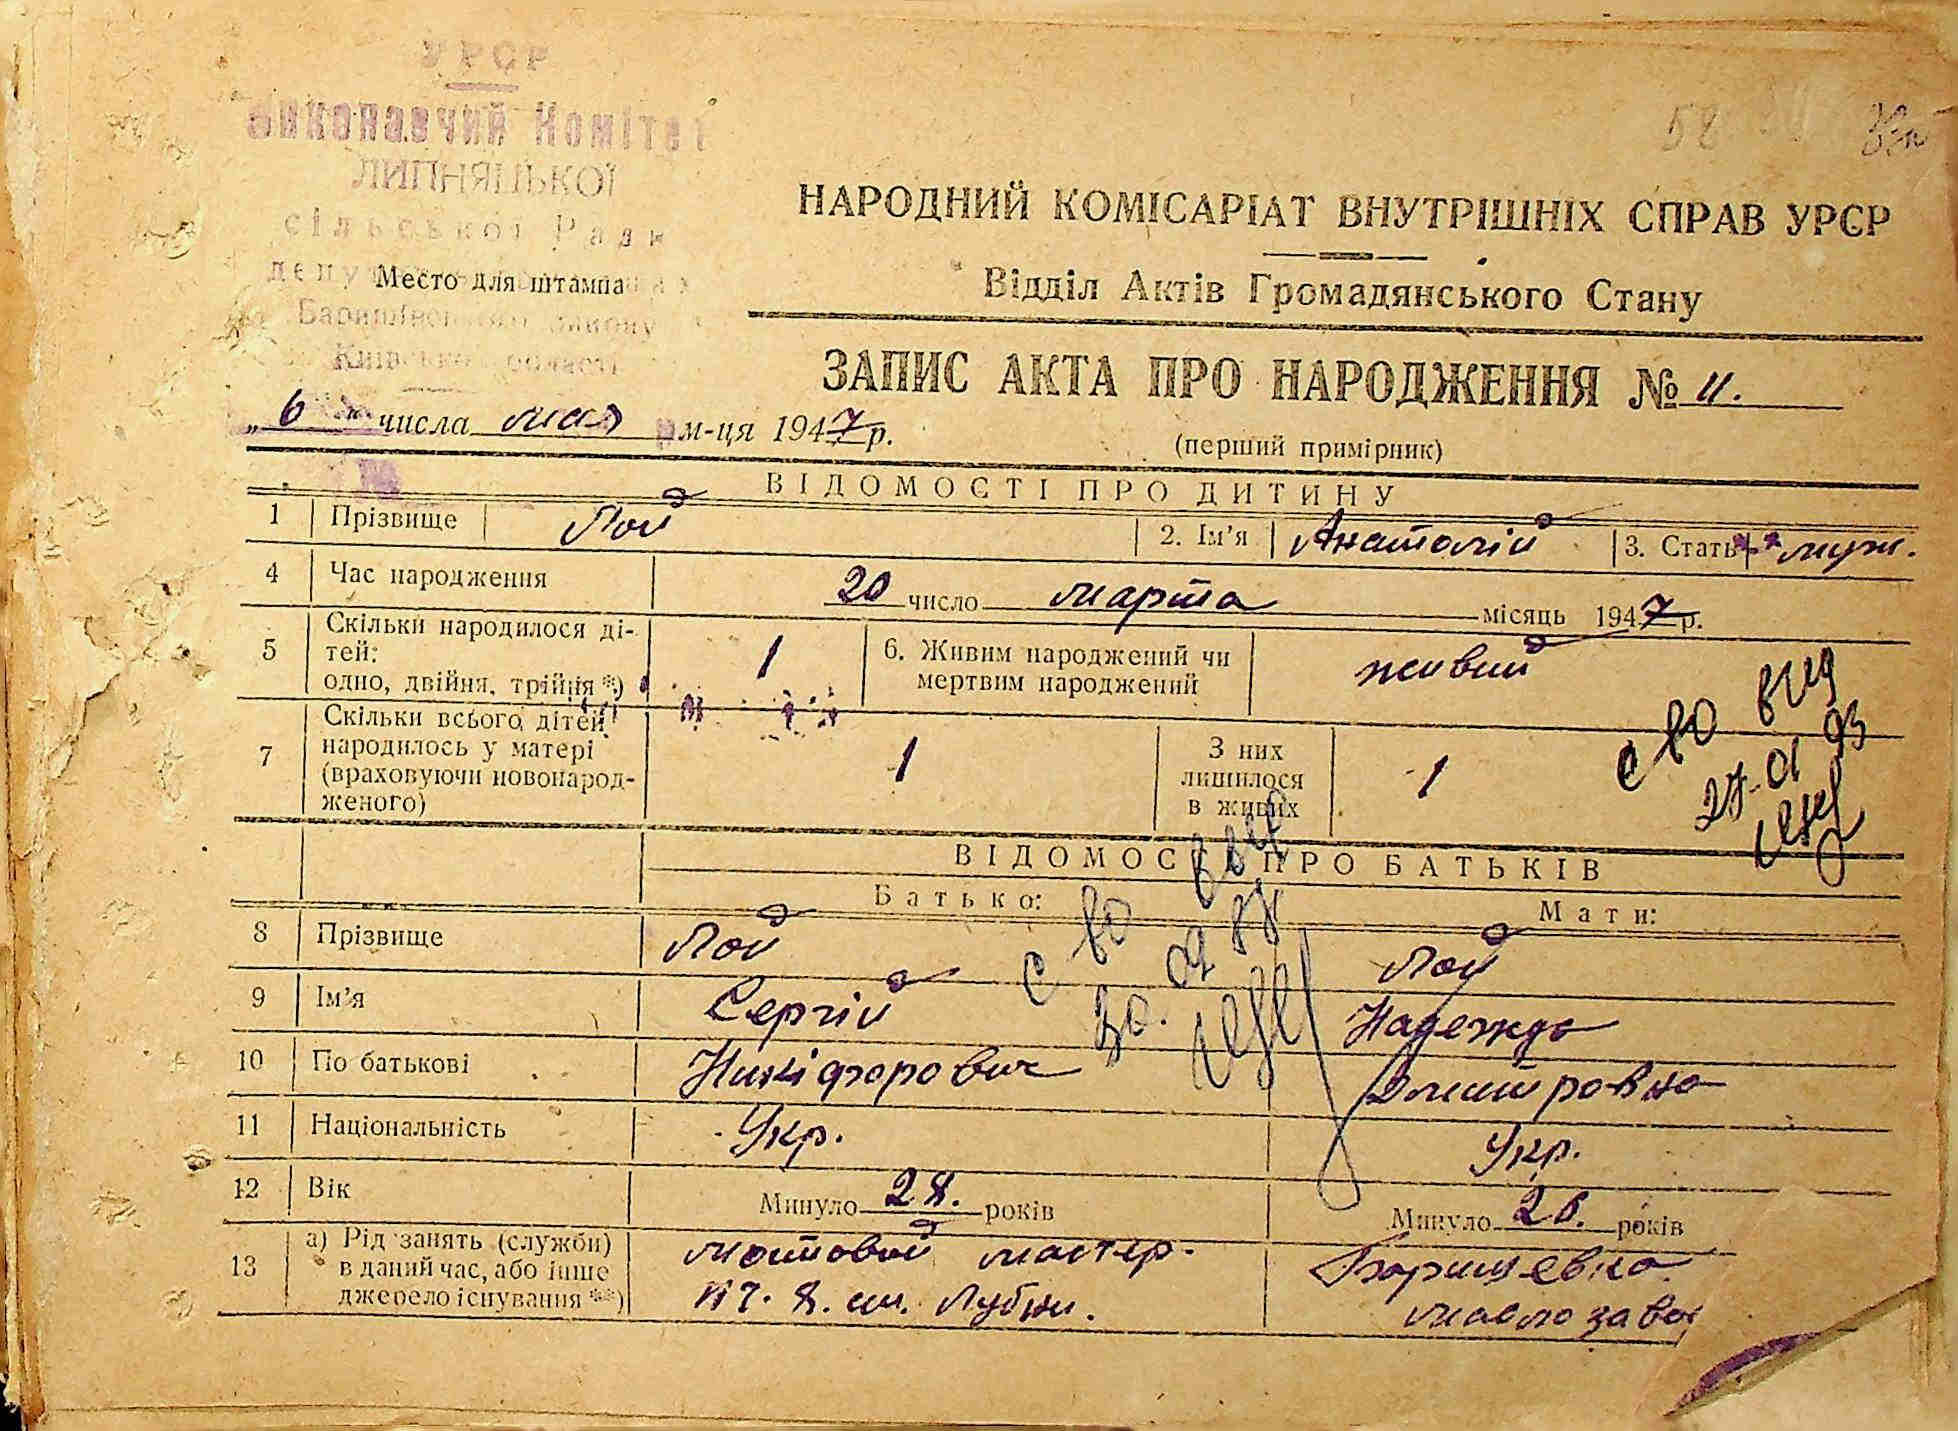 УРСР
Виконавчий Комітет
ЛИПНЯЦЬКОЇ
сільської Ради
Место для штампа
Баришівського району
Київської області
58
НАРОДНИЙ КОМІСАРІАТ ВНУТРІШНІХ СПРАВ УРСР
Відділ Актів Громадянського Стану
ЗАПИС АКТА ПРО НАРОДЖЕННЯ № 11.
„6" числа мая м-ця 1947 р.
(перший примірник)
ВІДОМОСТІ ПРО ДИТИНУ
1 Прізвище Лой 2. Ім'я Анатолій 3. Стать муж.
4 Час народження 20 число марта місяць 1947 р.
5 Скільки народилося ді-
тей:
одно, двійня, трійня *) 1 6. Живим народжений чи
мертвим народжений живий
7 Скільки всього дітей
народилось у матері
(враховуючи новонарод-
женого) 1 З них
лишилося
в живих 1
с во выд
27.01 93
ВІДОМОСТІ ПРО БАТЬКІВ
Батько: Мати:
с во выд
30.
8 Прізвище Лой Лой
9 Ім'я Сергій Надежда
10 По батькові Никіфорович Дмитровна
11 Національність Укр. Укр.
12 Вік Минуло 28. років Минуло 26. років
13 а) Рід занять (служби)
в даний час, або інше
джерело існування **)
мостовой мастер.
ПЧ. 8. ст. Лубни.
маслозавод